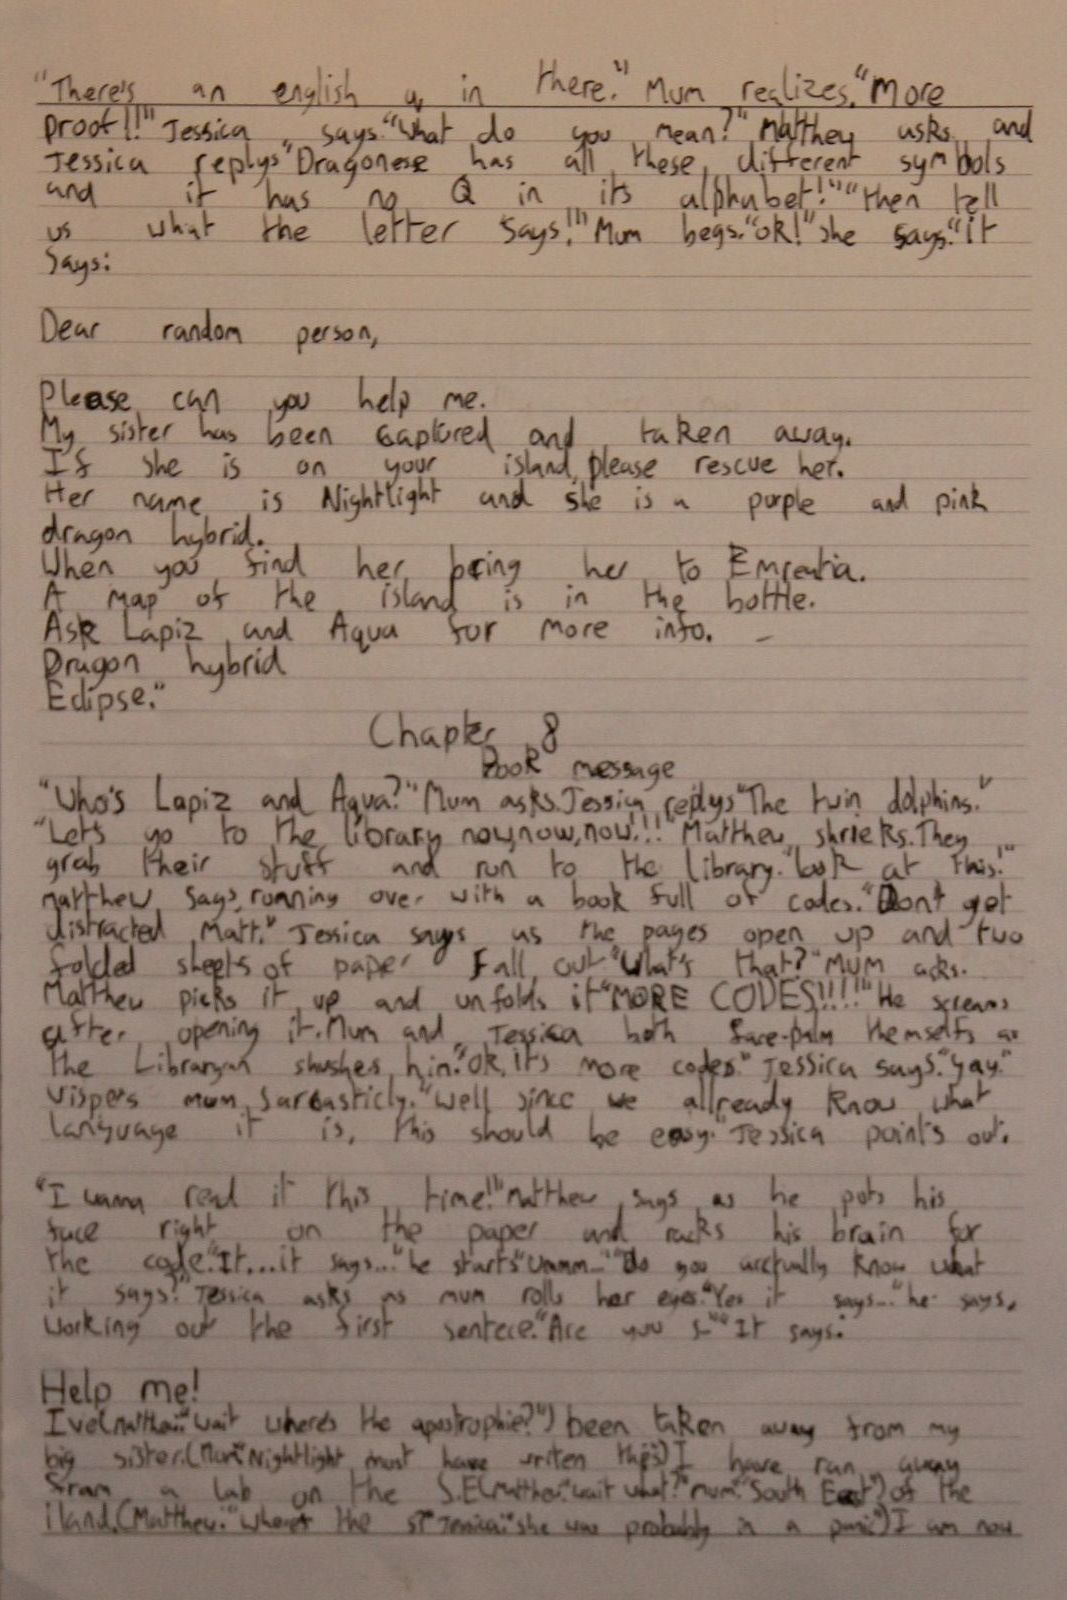 "There's an english q in there." Mum realizes. "More
proof!!" Jessica says. "What do you mean?" Matthew asks and
Jessica replys "Dragonese has all these different symbols
and it has no Q in its alphabet!" "Then tell
us what the letter says!" Mum begs. "ok!" she says. "it
says:
Dear random person,
Please can you help me.
My sister has been captured and taken away.
If she is on your island, please rescue her.
Her name is Nightlight and she is a purple and pink
dragon hybrid.
When you find her bring her to Emreatia.
A map of the island is in the bottle.
Ask Lapiz and Aqua for more info.
Dragon hybrid
Eclipse."
Chapter 8
Book message
"Who's Lapiz and Aqua?" Mum asks. Jessica replys "The twin dolphins."
"Lets go to the library now,now,now!!!" Matthew shrieks. They
grab their stuff and run to the library. "look at this!"
matthew says, running over with a book full of codes. "Dont get
distracted Matt." Jessica says as the pages open up and two
folded sheets of paper fall out "What's that?" Mum asks.
Matthew picks it up and unfolds it "MORE CODES!!!!" He screams
after opening it. Mum and Jessica both face-palm themselfs as
the Libraryan shushes him. "Ok, it's more codes." Jessica says. "yay."
vispers mum, Sarcasticly. "Well since we allready know what
language it is, this should be easy." Jessica points out.
"I wanna read it this time!" matthew says as he pots his
face right on the paper and racks his brain for
the code. "It...it says..." he starts "Ummm..." "Do you acctually know what
it says?" Jessica asks as mum rolls her eyes. "Yes it says..." he says,
working out the first sentece. "Are you s-" "It says:
Help me!
Ive (Matthew: "wait where's the apostrophie?") been taken away from my
big sister. (Mum: "Nightlight must have writen this") I have ran away
from a lab on the S.E (Matthew: "wait what?" mum: "South East") of the
iland. (Matthew: "where's the s?" Jessica: "she was probably in a panic") I am now